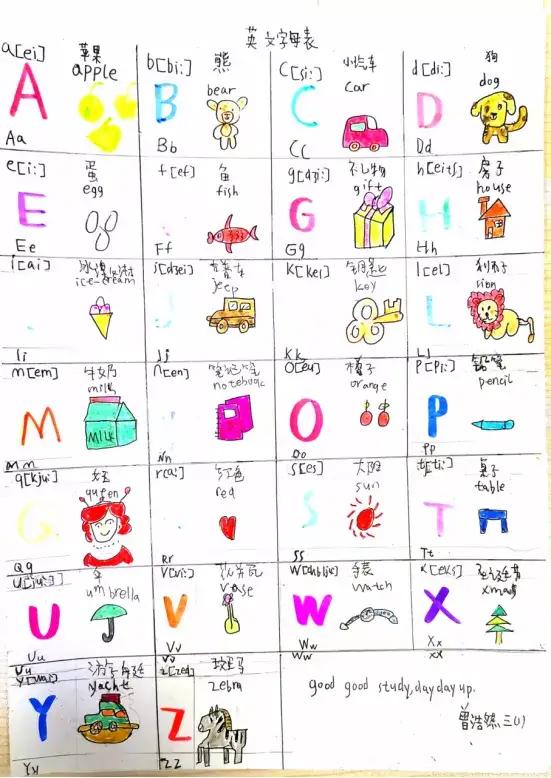 英文字母表
a[ei] 苹果
apple
A
Aa
b[bi:] 熊
bear
B
Bb
C[si:] 小汽车
car
C
Cc
d[di:] 狗
dog
D
Dd
e[i:] 蛋
egg
E
Ee
f[ef] 鱼
fish
Ff
g[dʒi:] 礼物
gift
G
Gg
h[eitʃ] 房子
house
H
Hh
i[ai]
ice-cream
Ii
jeep
J
Jj
K[kei]
key
Kk
l[el]
lion
L
Ll
m[em] 牛奶
milk
M
MILK
Mm
n[en] 笔记
Nn
O[əu] 橙子
orange
O
Oo
P[pi:] 铅笔
pencil
P
Pp
q[kju:]
queen
Q
Qq
r[a:] 红色
red
Rr
s[es]
sun
S
Ss
t[ti:] 桌子
table
T
Tt
伞
umbrella
U
Uu
V[vi:]
vase
V
Vv
手表
watch
W
Ww
x[eks]
xmas
X
Xx
Uu
yacht
Y
Yy
Vv
z[zed] 斑马
zebra
Z
Zz
Ww
xx
good good study, day day up.